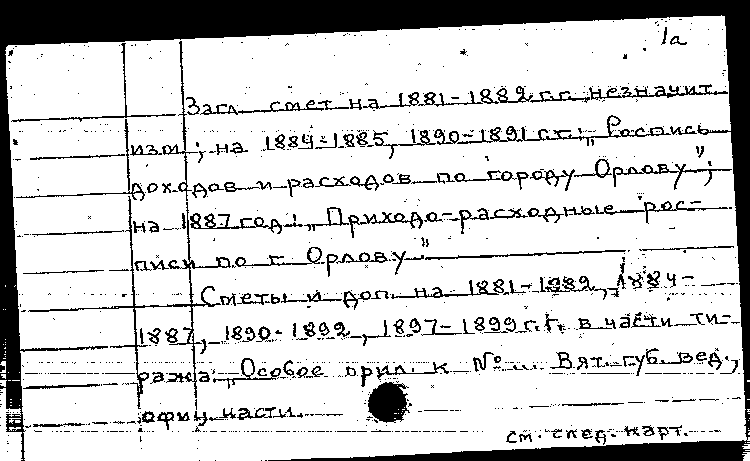 1а
Загл. смет на 1881-1882 г.г. незначит.
изм.; на 1884-1885, 1890-1891 г.г.: „Роспись
доходов и расходов по городу Орлову";
на 1887 год: „Приходо-расходные рос-
писи по г. Орлову"
Сметы и доп. на 1881-1882, 1884-
1887, 1890-1892, 1897-1899 г.г. в части ти-
ража: „Особое прил. к №... Вят. губ. вед.,
офиц. части.
см. след. карт.